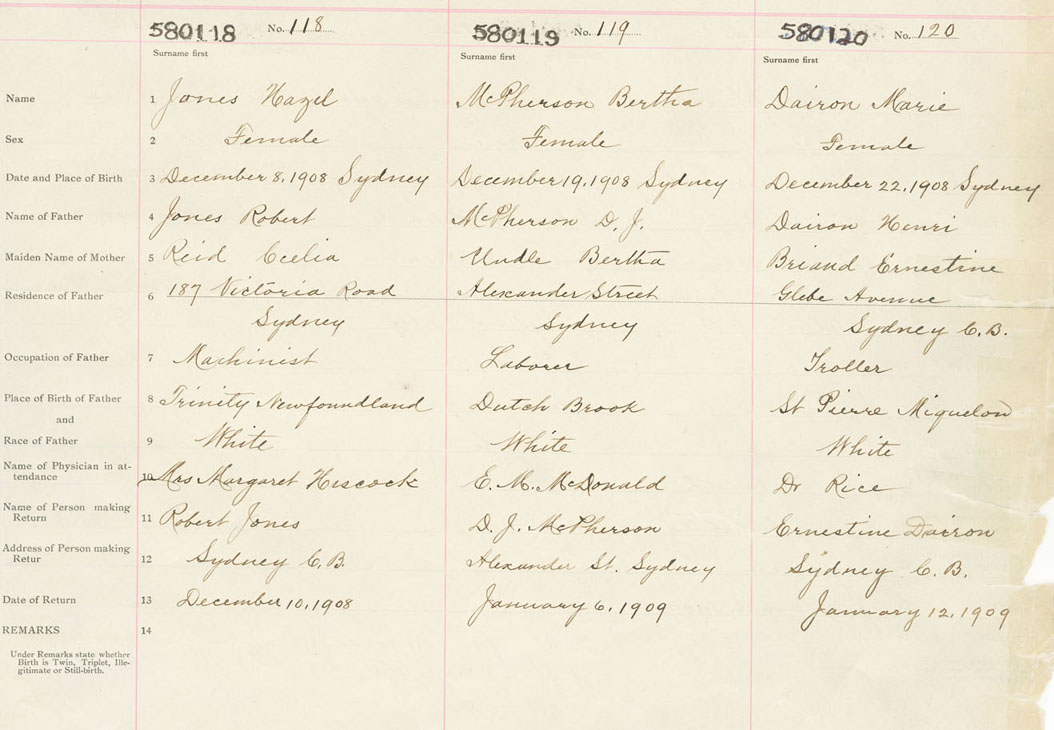 580118 No. 118 580119 No. 119 580120 No. 120
Surname first Surname first Surname first
Name 1 Jones Hazel McPherson Bertha Dairon Marie
Sex 2 Female Female Female
Date and Place of Birth 3 December 8, 1908 Sydney December 19, 1908 Sydney December 22, 1908 Sydney
Name of Father 4 Jones Robert McPherson D. J. Dairon Henri
Maiden Name of Mother 5 Reid Cecilia Undle Bertha Briand Ernestine
Residence of Father 6 187 Victoria Road Alexander Street Glebe Avenue
Sydney Sydney Sydney C.B.
Occupation of Father 7 Machinist Laborer Troller
Place of Birth of Father 8 Trinity Newfoundland Dutch Brook St Pierre Miquelon
and
Race of Father 9 White White White
Name of Physician in at-
tendance 10 Mrs Margaret Hiscock E. M. McDonald Dr Rice
Name of Person making
Return 11 Robert Jones D. J. McPherson Ernestine Dairon
Address of Person making
Retur 12 Sydney C.B. Alexander St. Sydney Sydney C.B.
Date of Return 13 December 10, 1908 January 6, 1909 January 12, 1909
REMARKS 14
Under Remarks state whether
Birth is Twin, Triplet, Ille-
gitimate or Still-birth.